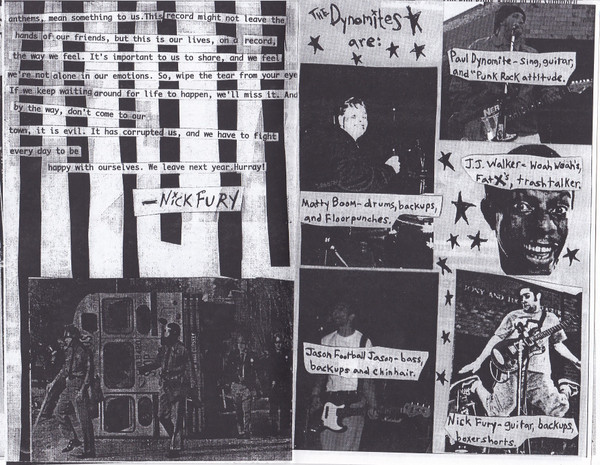 anthems, mean something to us.This record might not leave the
hands of our friends, but this is our lives, on a record,
the way we feel. It's important to us to share, and we feel
we're not alone in our emotions. So, wipe the tear from your eye
If we keep waiting around for life to happen, we'll miss it. And
by the way, don't come to our
town, it is evil. It has corrupted us, and we have to fight
every day to be
happy with ourselves. We leave next year.Hurray!
- NICK FURY
THE Dynomites
are:
Paul Dynomite - sing, guitar,
and "Punk Rock attitude.
J.J. Walker - Woah Woah's,
Fat X's, trash talker.
Matty Boom - drums, backups,
and Floorpunches.
Jason Football Jason - bass,
backups and chinhair.
Nick Fury - guitar, backups,
boxershorts.